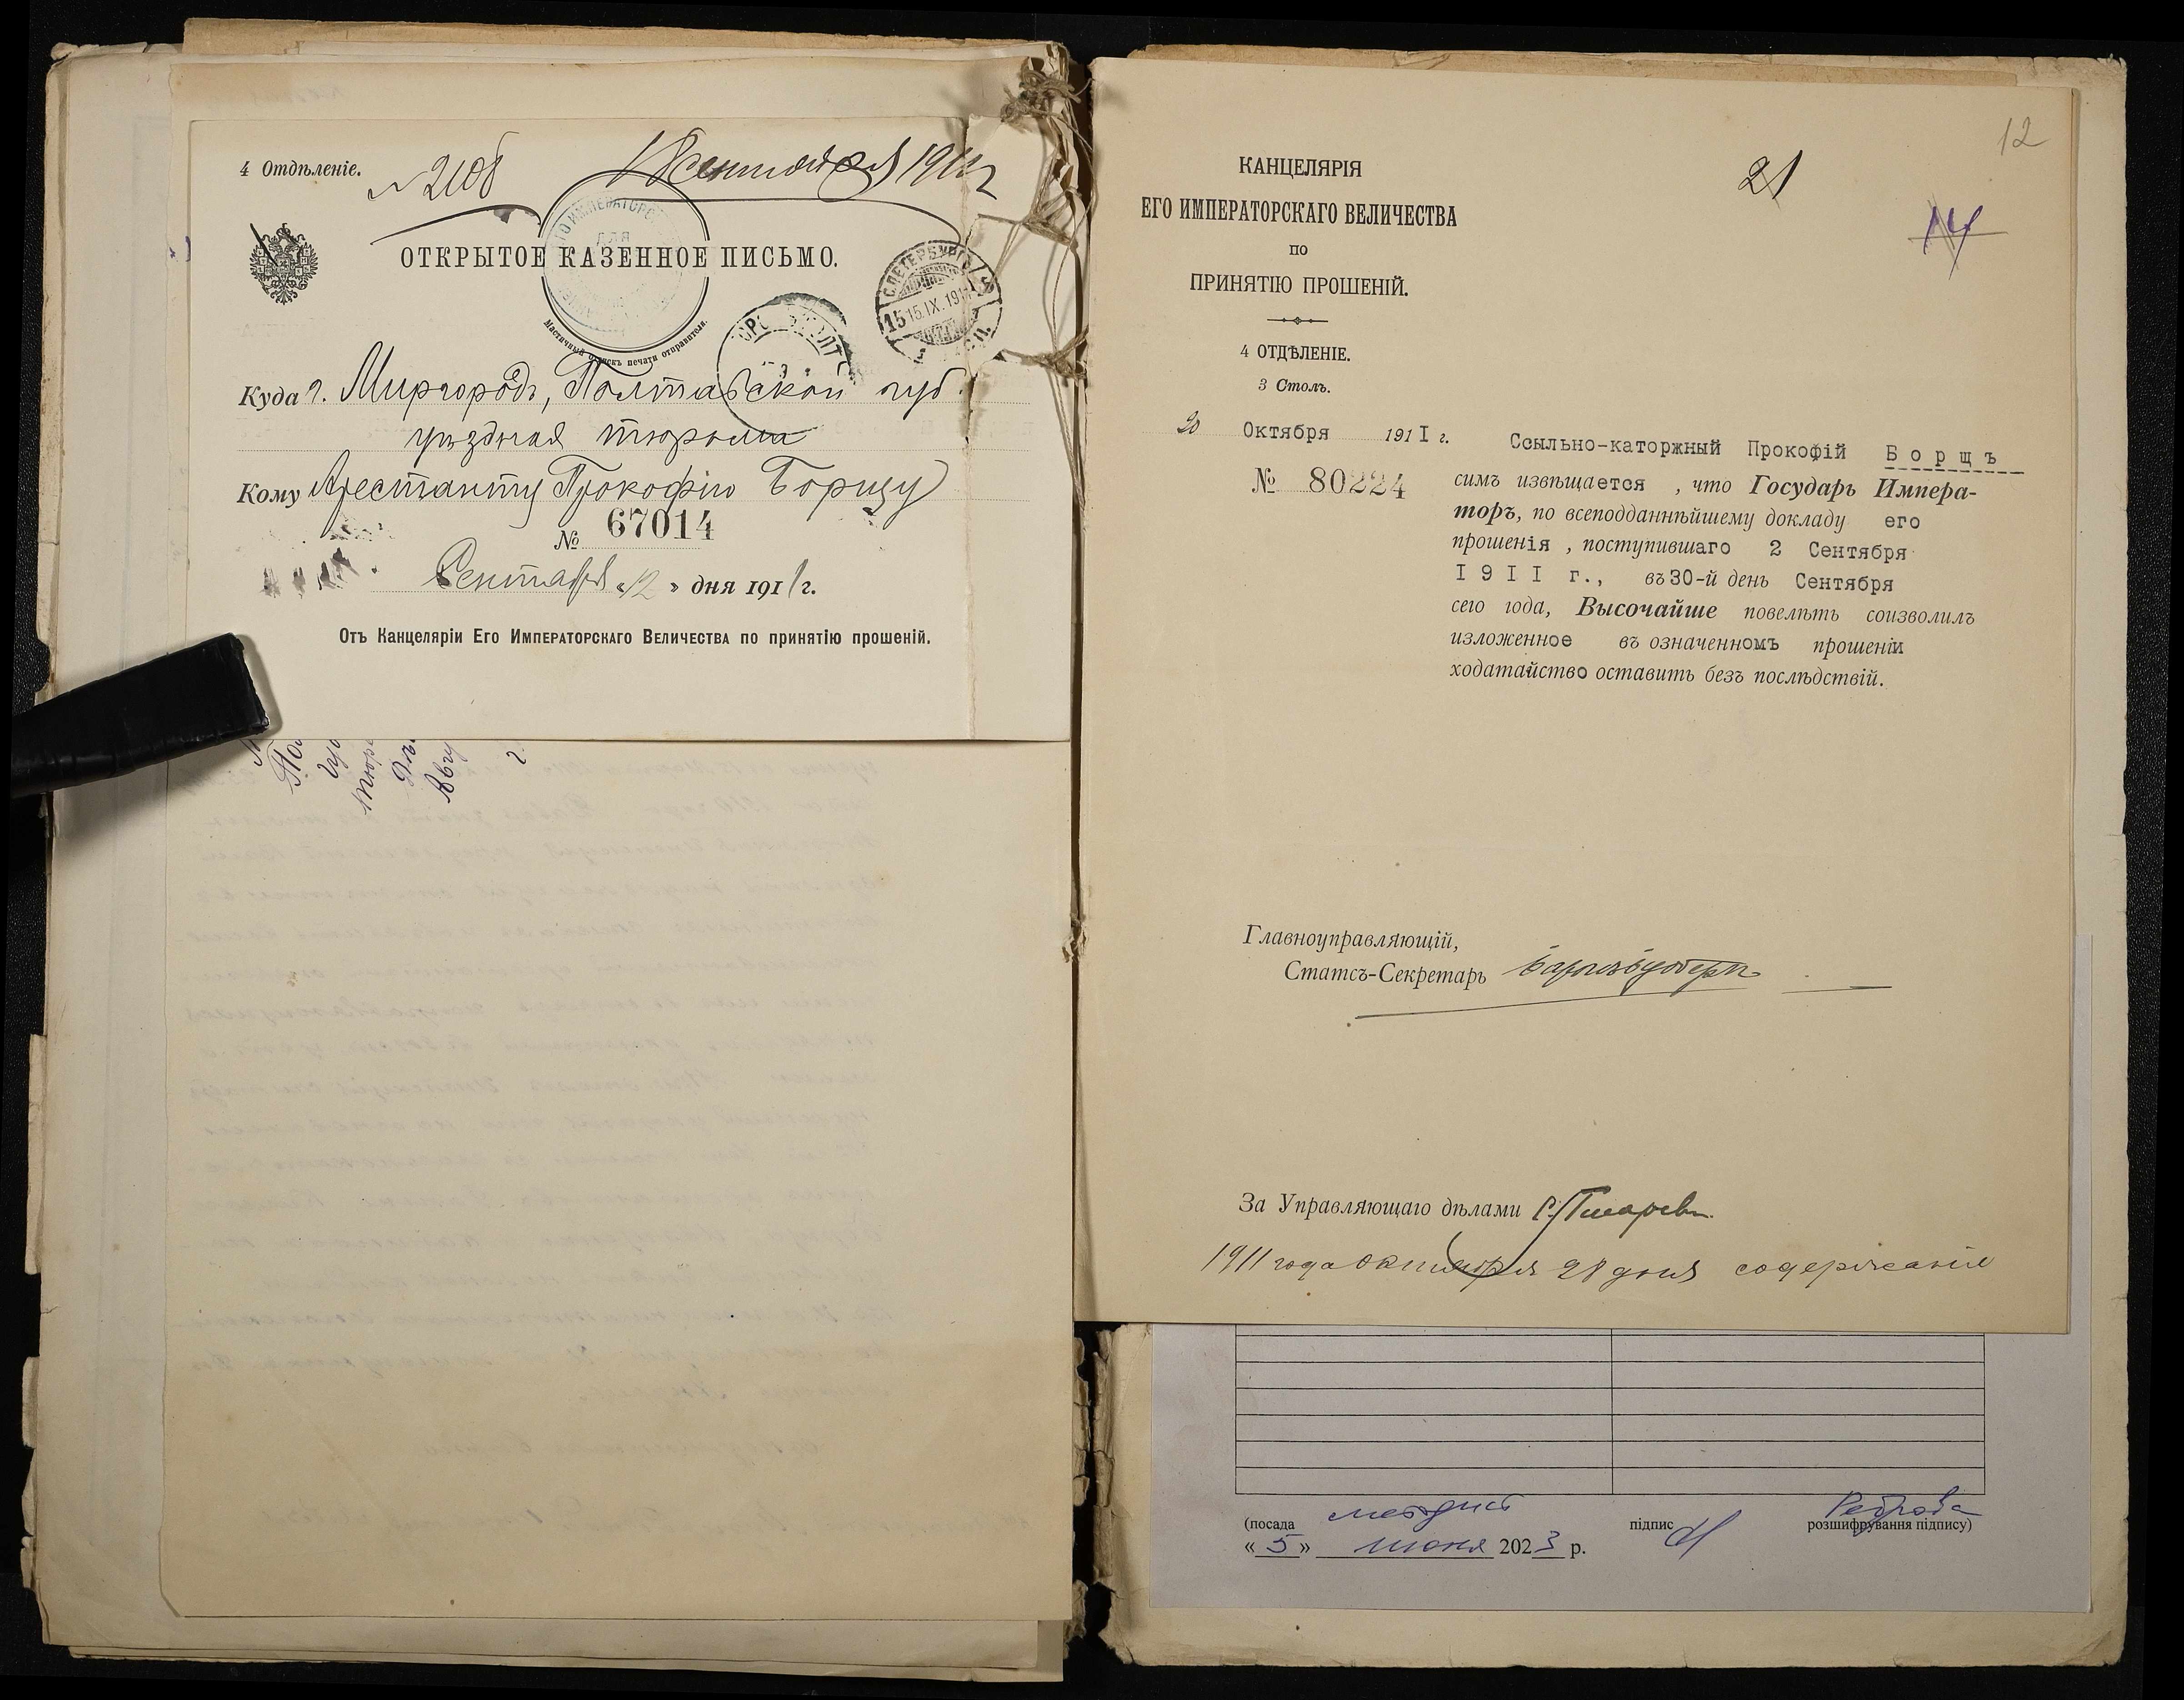 4 Отдѣленіе.
№ 2108
18 сентября 1911 г
ОТКРЫТОЕ КАЗЕННОЕ ПИСЬМО.
ДЛЯ
Мастичный оттискъ печати отправителя.
С.ПЕТЕРБУРГЪ
15 15.IX.1911
Куда г. Миргородъ, Полтавской губ.
уѣздная тюрьма
Кому Арестанту Прокофію Борщу
№ 67014
Сентября «12» дня 1911 г.
Отъ Канцеляріи Его Императорскаго Величества по принятію прошеній.
12
21
14
КАНЦЕЛЯРІЯ
ЕГО ИМПЕРАТОРСКАГО ВЕЛИЧЕСТВА
ПО
ПРИНЯТІЮ ПРОШЕНІЙ.
4 ОТДѢЛЕНІЕ.
3 Столъ.
20 Октября 191I г.
№ 80224
Ссыльно-каторжный Прокофій Борщъ
симъ извѣщается , что Государь Импера-
торъ, по всеподданнѣйшему докладу его
прошенія , поступившаго 2 Сентября
I9II г., въ 30-й день Сентября
сего года, Высочайше повелѣть соизволилъ
изложенное въ означенномъ прошеніи
ходатайство оставить безъ послѣдствій.
Главноуправляющій,
Статсъ-Секретарь Баронъ Будбергъ
За Управляющаго дѣлами
1911 года октября 28 дня содержаніе
(посада методист підпис розшифрування підпису)
«5» июня 2023 р.